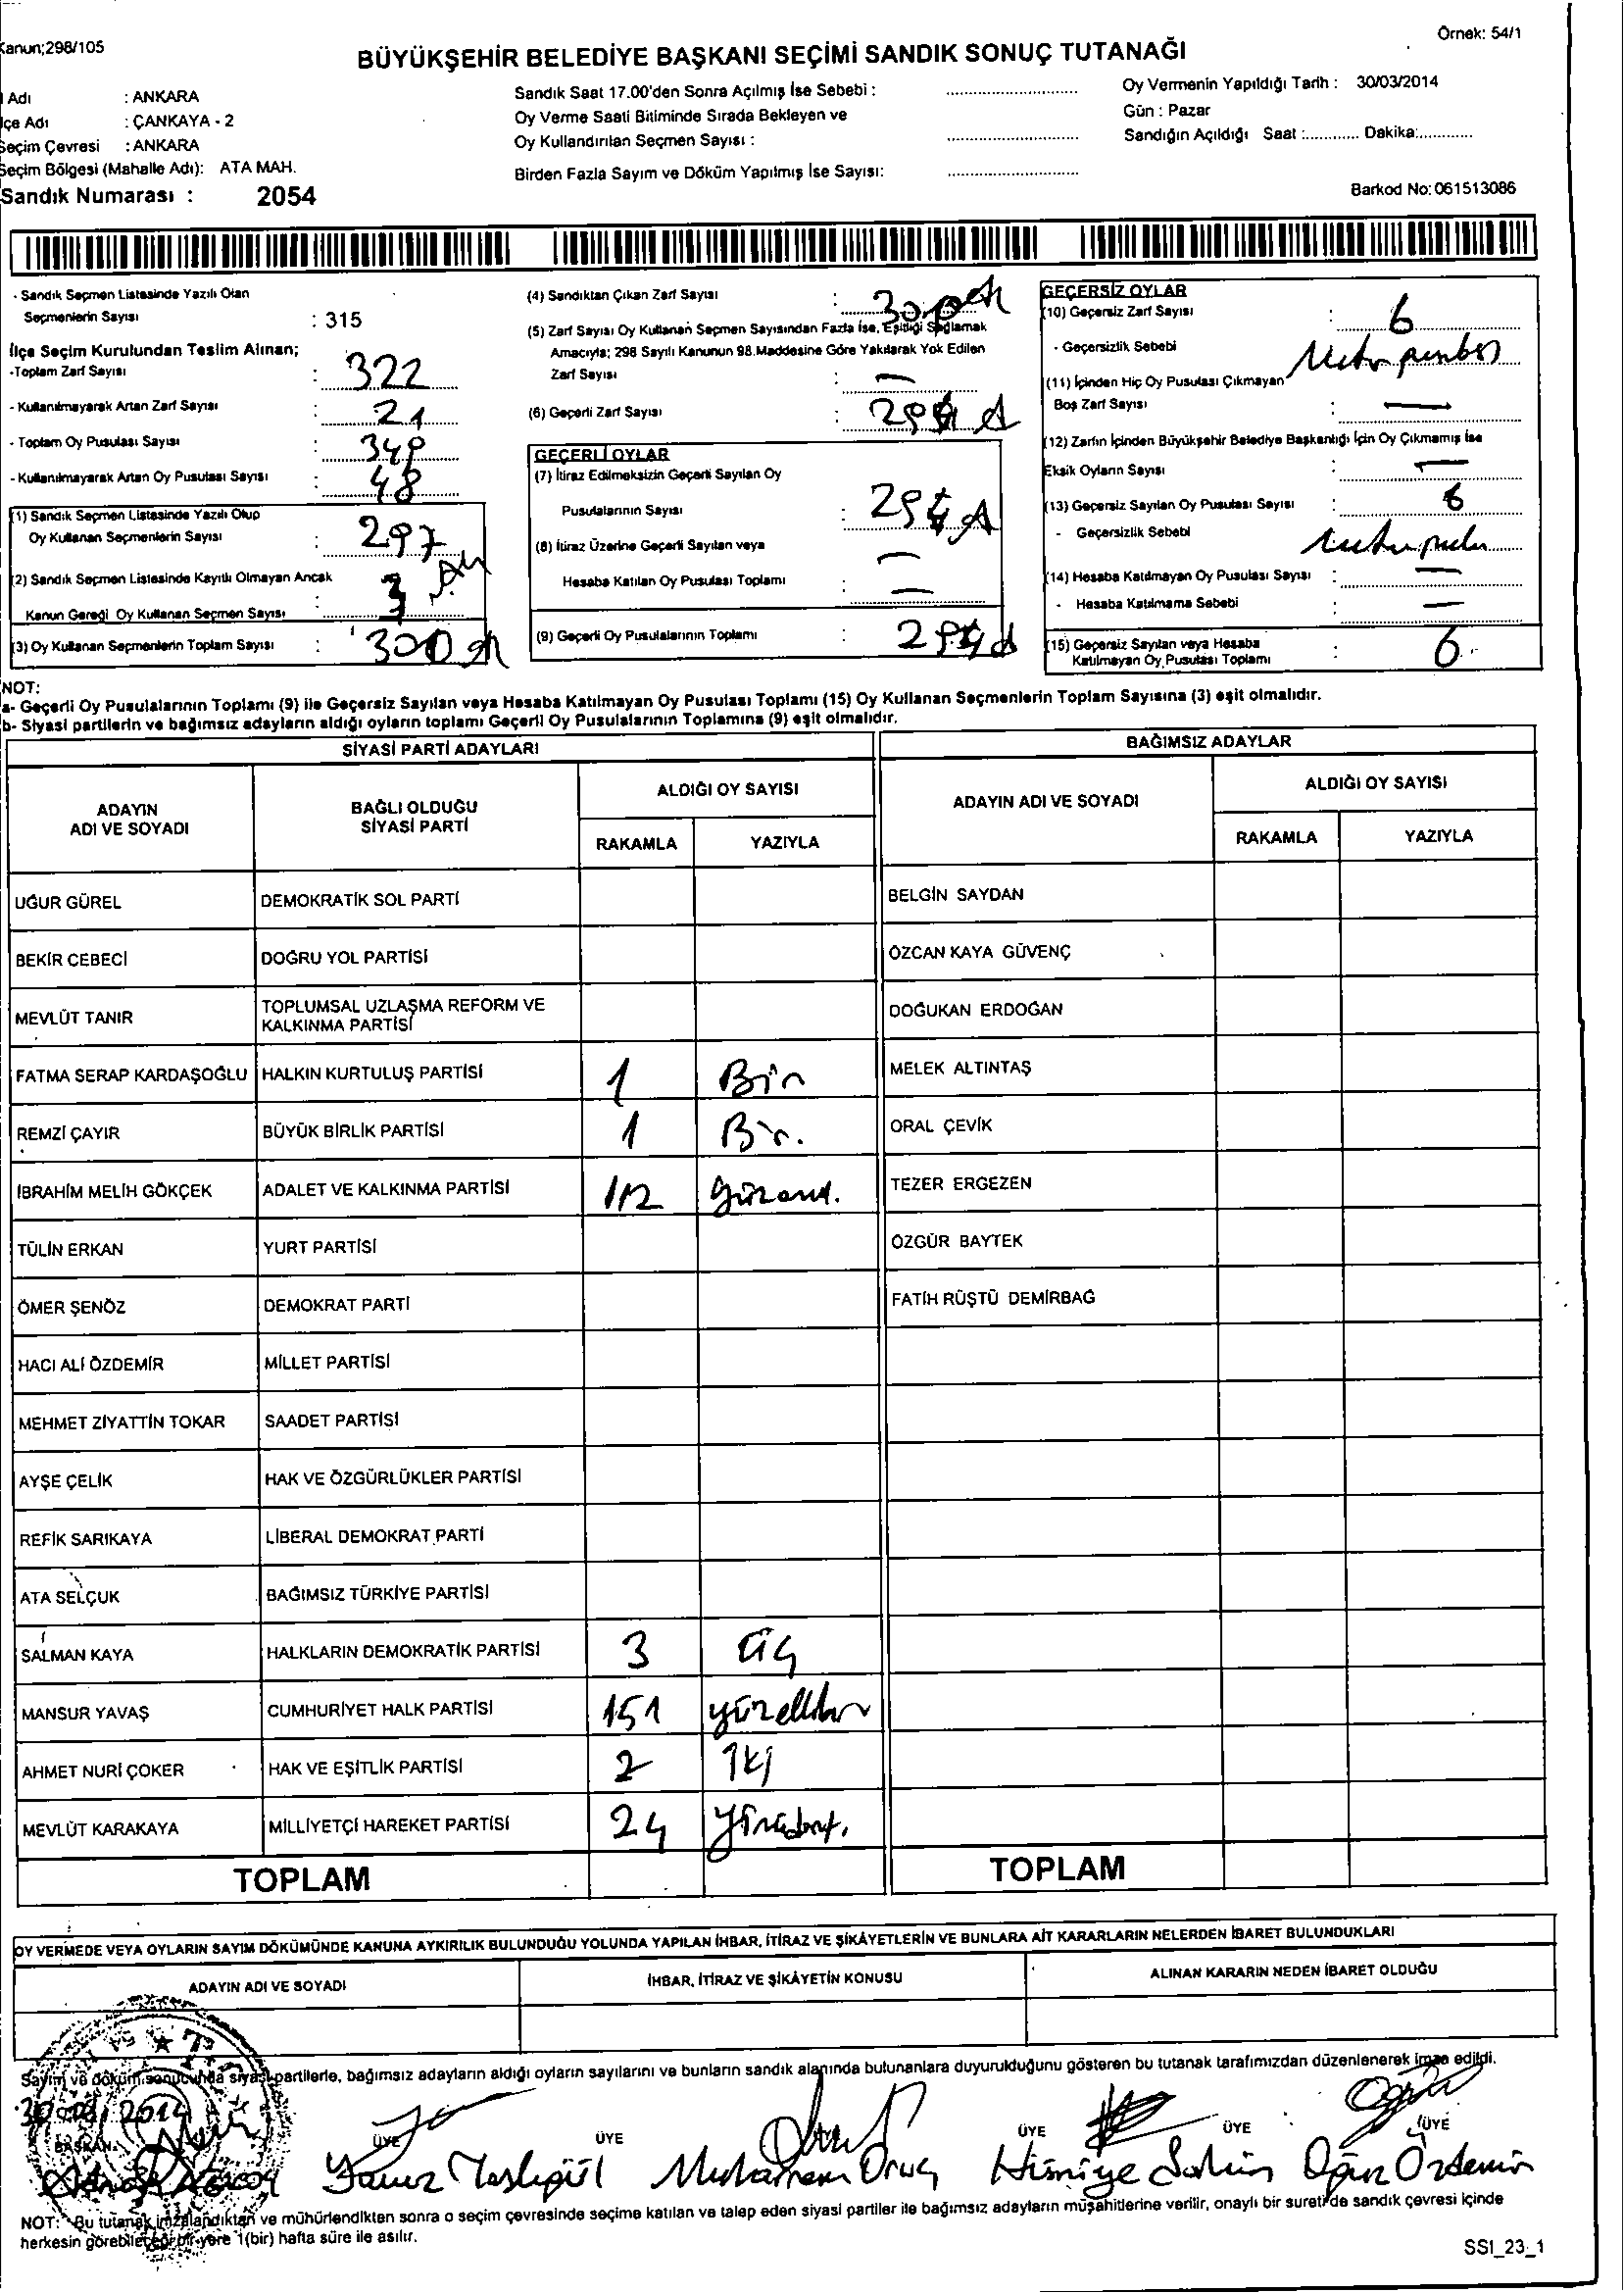 Kanun;298/105
Örnek: 54/1
BÜYÜKŞEHİR BELEDİYE BAŞKANI SEÇİMİ SANDIK SONUÇ TUTANAĞI
Adı : ANKARA
lçe Adı : ÇANKAYA - 2
Seçim Çevresi : ANKARA
Seçim Bölgesi (Mahalle Adı): ATA MAH.
Sandık Numarası : 2054
Sandık Saat 17.00'den Sonra Açılmış İse Sebebi :
Oy Verme Saati Bitiminde Sırada Bekleyen ve
Oy Kullandırılan Seçmen Sayısı :
Birden Fazla Sayım ve Döküm Yapılmış İse Sayısı:
Oy Vermenin Yapıldığı Tarih : 30/03/2014
Gün : Pazar
Sandığın Açıldığı Saat :............ Dakika:............
Barkod No: 061513086
- Sandık Seçmen Listesinde Yazılı Olan
Seçmenlerin Sayısı : 315
İlçe Seçim Kurulundan Teslim Alınan;
-Toplam Zarf Sayısı : 322
- Kullanılmayarak Artan Zarf Sayısı : 21
- Toplam Oy Pusulası Sayısı : 348
- Kullanılmayarak Artan Oy Pusulası Sayısı : 48
(1) Sandık Seçmen Listesinde Yazılı Olup
Oy Kullanan Seçmenlerin Sayısı : 297
(2) Sandık Seçmen Listesinde Kayıtlı Olmayan Ancak
Kanun Gereği Oy Kullanan Seçmen Sayısı : 3
(3) Oy Kullanan Seçmenlerin Toplam Sayısı : 300
(4) Sandıktan Çıkan Zarf Sayısı : 300
(5) Zarf Sayısı Oy Kullanan Seçmen Sayısından Fazla İse, Eşitliği Sağlamak
Amacıyla; 298 Sayılı Kanunun 98.Maddesine Göre Yakılarak Yok Edilen
Zarf Sayısı : —
(6) Geçerli Zarf Sayısı : 294
GEÇERLİ OYLAR
(7) İtiraz Edilmeksizin Geçerli Sayılan Oy
Pusulalarının Sayısı : 294
(8) İtiraz Üzerine Geçerli Sayılan veya —
Hesaba Katılan Oy Pusulası Toplamı : —
(9) Geçerli Oy Pusulalarının Toplamı : 294
GEÇERSİZ OYLAR
(10) Geçersiz Zarf Sayısı : 6
- Geçersizlik Sebebi
(11) İçinden Hiç Oy Pusulası Çıkmayan
Boş Zarf Sayısı : —
(12) Zarfın İçinden Büyükşehir Belediye Başkanlığı İçin Oy Çıkmamış İse
Eksik Oyların Sayısı : —
(13) Geçersiz Sayılan Oy Pusulası Sayısı : 6
- Geçersizlik Sebebi
(14) Hesaba Katılmayan Oy Pusulası Sayısı : —
- Hesaba Katılmama Sebebi : —
(15) Geçersiz Sayılan veya Hesaba
Katılmayan Oy Pusulası Toplamı : 6
NOT:
a- Geçerli Oy Pusulalarının Toplamı (9) ile Geçersiz Sayılan veya Hesaba Katılmayan Oy Pusulası Toplamı (15) Oy Kullanan Seçmenlerin Toplam Sayısına (3) eşit olmalıdır.
b- Siyasi partilerin ve bağımsız adayların aldığı oyların toplamı Geçerli Oy Pusulalarının Toplamına (9) eşit olmalıdır.
SİYASİ PARTİ ADAYLARI
ADAYIN
ADI VE SOYADI
BAĞLI OLDUĞU
SİYASİ PARTİ
ALDIĞI OY SAYISI
RAKAMLA YAZIYLA
UĞUR GÜREL DEMOKRATİK SOL PARTİ
BEKİR CEBECİ DOĞRU YOL PARTİSİ
MEVLÜT TANIR TOPLUMSAL UZLAŞMA REFORM VE
KALKINMA PARTİSİ
FATMA SERAP KARDAŞOĞLU HALKIN KURTULUŞ PARTİSİ 1 Bir
REMZİ ÇAYIR BÜYÜK BİRLİK PARTİSİ 1 Bir.
İBRAHİM MELİH GÖKÇEK ADALET VE KALKINMA PARTİSİ 112
TÜLİN ERKAN YURT PARTİSİ
ÖMER ŞENÖZ DEMOKRAT PARTİ
HACI ALİ ÖZDEMİR MİLLET PARTİSİ
MEHMET ZİYATTİN TOKAR SAADET PARTİSİ
AYŞE ÇELİK HAK VE ÖZGÜRLÜKLER PARTİSİ
REFİK SARIKAYA LİBERAL DEMOKRAT PARTİ
ATA SELÇUK BAĞIMSIZ TÜRKİYE PARTİSİ
SALMAN KAYA HALKLARIN DEMOKRATİK PARTİSİ 3 üç
MANSUR YAVAŞ CUMHURİYET HALK PARTİSİ 151 yüzellibir
AHMET NURİ ÇOKER HAK VE EŞİTLİK PARTİSİ 2 iki
MEVLÜT KARAKAYA MİLLİYETÇİ HAREKET PARTİSİ 24
TOPLAM
BAĞIMSIZ ADAYLAR
ADAYIN ADI VE SOYADI
ALDIĞI OY SAYISI
RAKAMLA YAZIYLA
BELGİN SAYDAN
ÖZCAN KAYA GÜVENÇ
DOĞUKAN ERDOĞAN
MELEK ALTINTAŞ
ORAL ÇEVİK
TEZER ERGEZEN
ÖZGÜR BAYTEK
FATİH RÜŞTÜ DEMİRBAĞ
TOPLAM
OY VERMEDE VEYA OYLARIN SAYIM DÖKÜMÜNDE KANUNA AYKIRILIK BULUNDUĞU YOLUNDA YAPILAN İHBAR, İTİRAZ VE ŞİKÂYETLERİN VE BUNLARA AİT KARARLARIN NELERDEN İBARET BULUNDUKLARI
ADAYIN ADI VE SOYADI
İHBAR, İTİRAZ VE ŞİKÂYETİN KONUSU
ALINAN KARARIN NEDEN İBARET OLDUĞU
Sayım ve döküm sonucunda siyasi partilerle, bağımsız adayların aldığı oyların sayılarını ve bunların sandık alanında bulunanlara duyurulduğunu gösteren bu tutanak tarafımızdan düzenlenerek imza edildi.
BAŞKAN ÜYE ÜYE ÜYE ÜYE ÜYE
Yavuz Taşlıgül Muharrem Oruç Himiye Şahin Oğuz Özdemir
NOT: Bu tutanak imzalandıktan ve mühürlendikten sonra o seçim çevresinde seçime katılan ve talep eden siyasi partiler ile bağımsız adayların müşahitlerine verilir, onaylı bir sureti de sandık çevresi içinde
herkesin görebileceği bir yere 1(bir) hafta süre ile asılır.
SSI_23_1